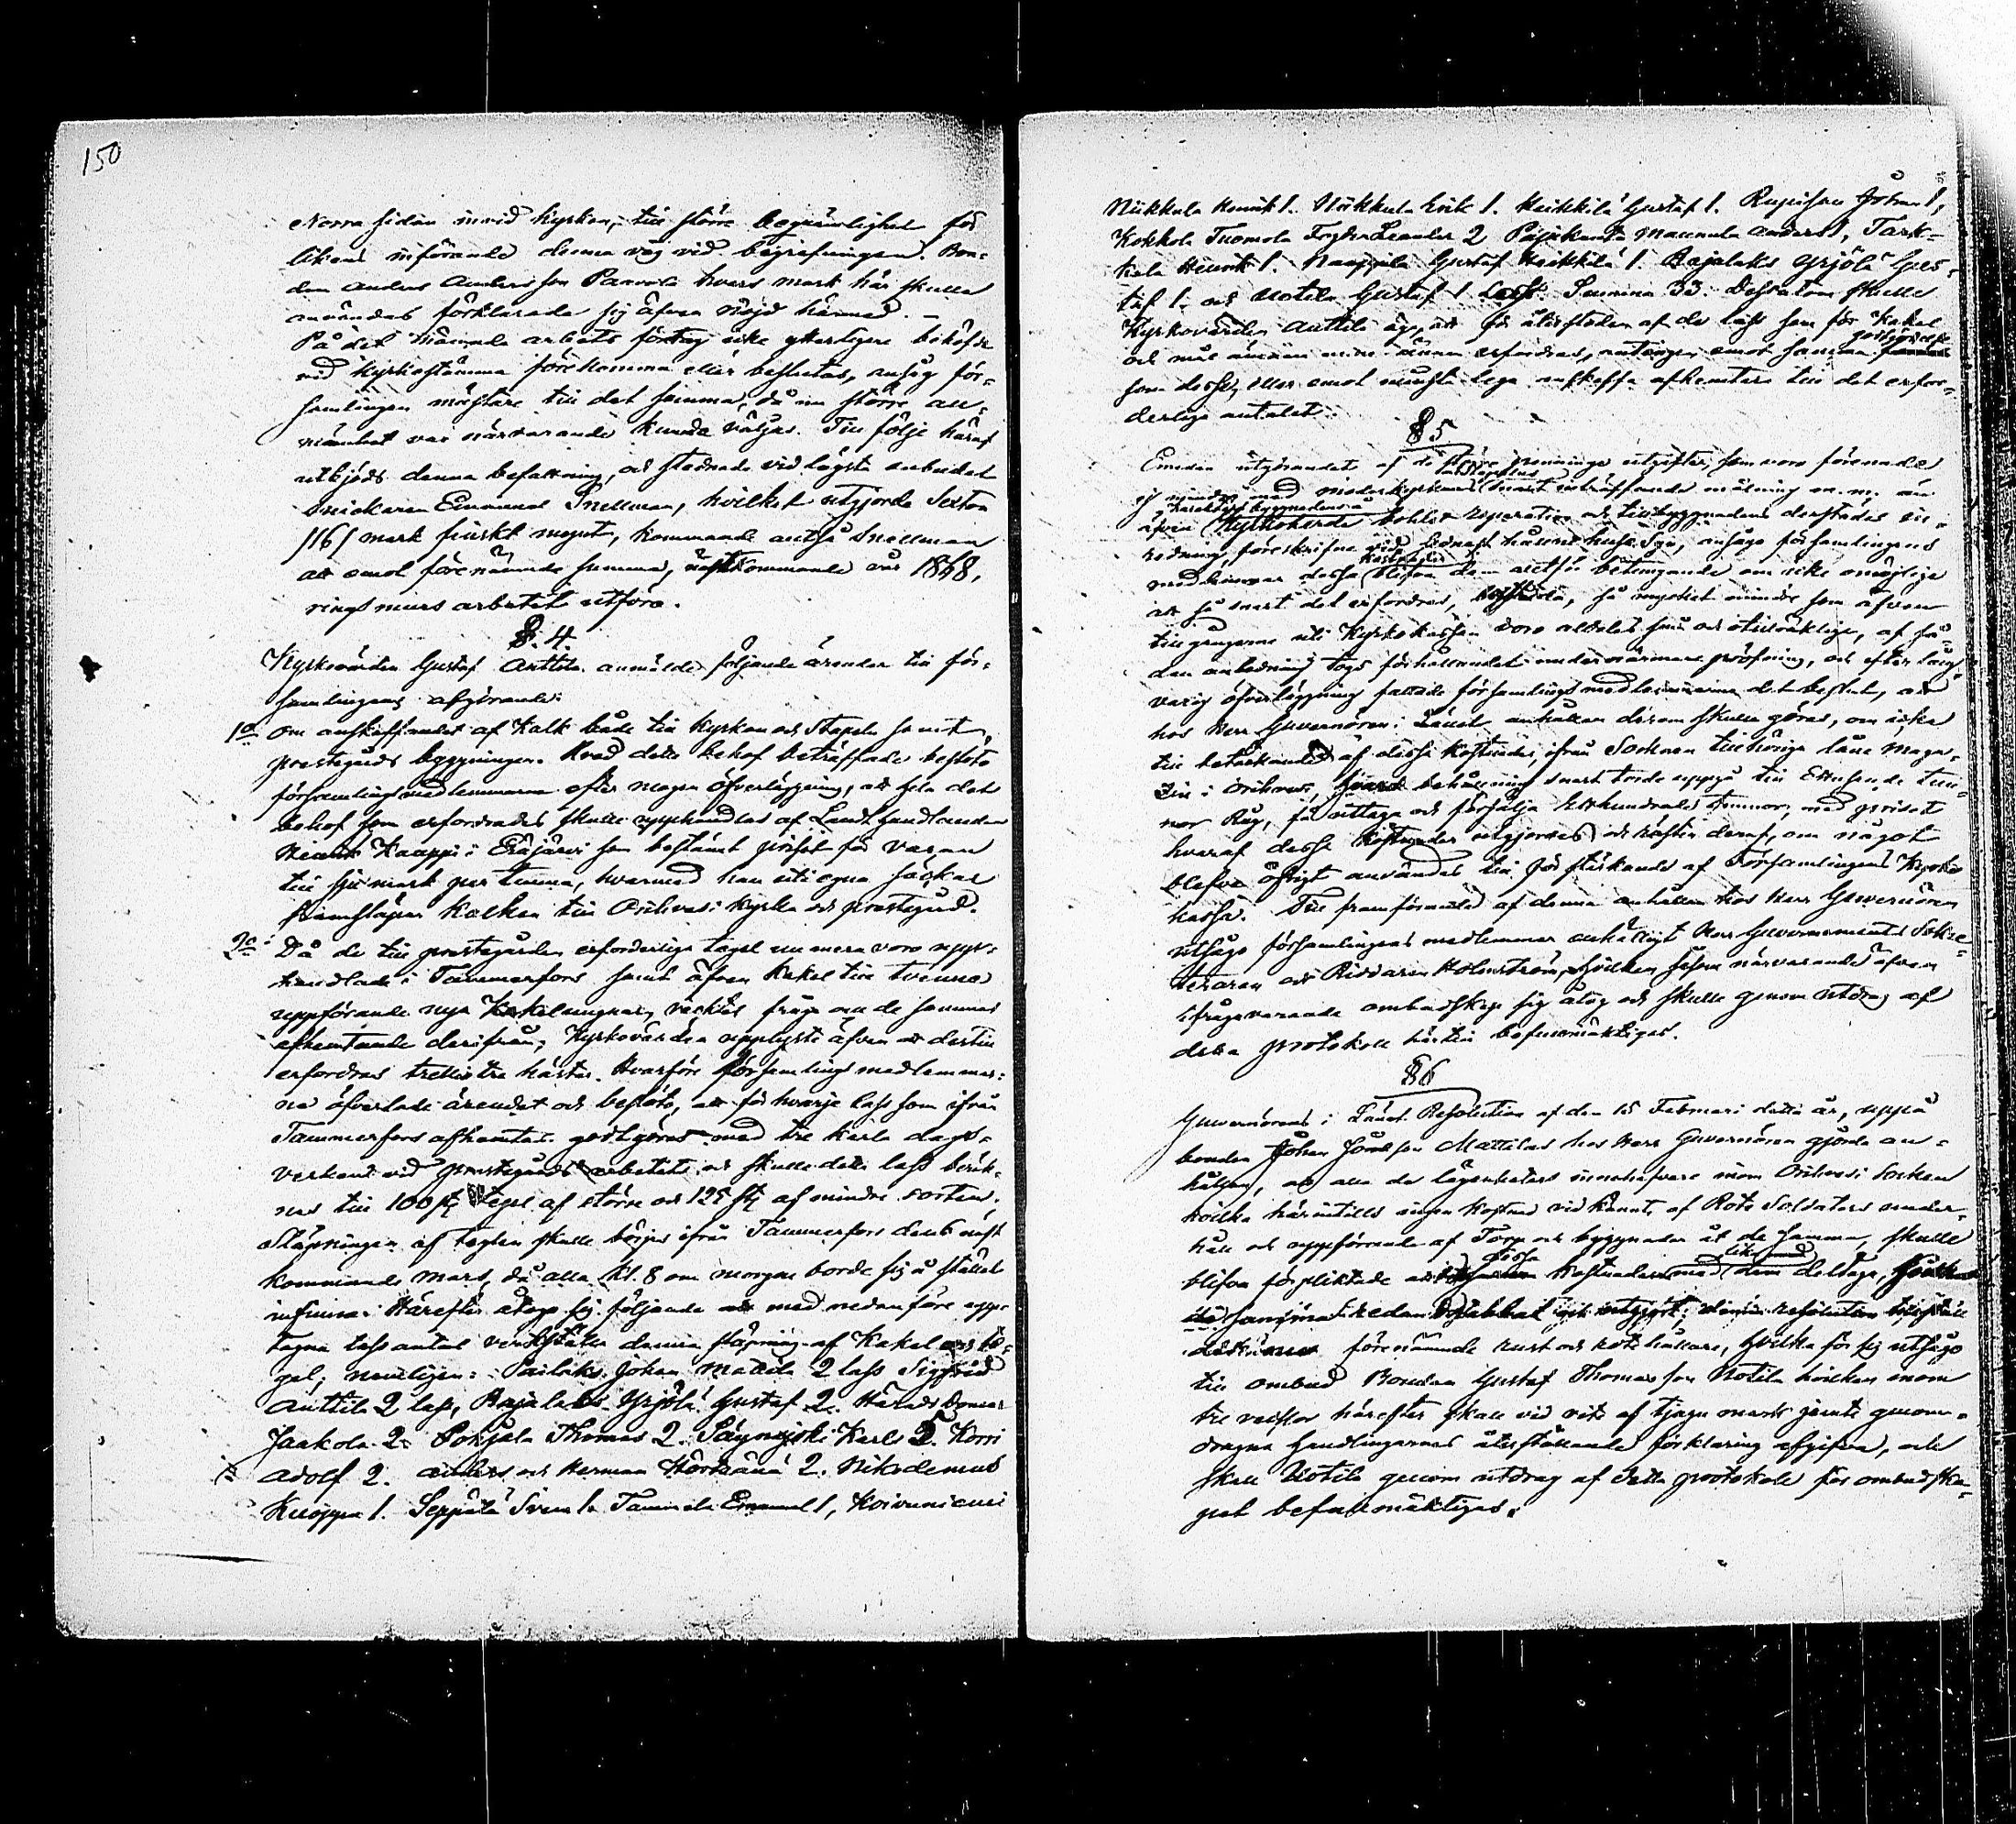 150
Norra sidan invid kyrkan, till större beqvämlighet för
likens införande denna väg vid begrafningen. Bon-
den Anders Andersson Paavola hvars mark här skulle
användas förklarade sig äfven nöjd härmed.
På det nämnde arbets företag icke ytterligare behöfde
vid Kyrkostämma förekomma eller beslutas, ansåg för-
samlingen mästare till det samma, då nu större an-
närvarande kunde väljas. Till följe häraf
utbjöds denna befattning, och stadnade vid lägsta anbudet
Snickaren Emanuel Snellman, hvilket utgjorde Sexton
/16/ mark finskt mynt, kommande alltså Snellman
att emot förenämnde summa, nästkommande år 1868,
ringmurs arbetet utföra.
§. 4.
Kyrkovärden Gustaf Anttila anmälde följande ärender till för-
samlingens afgörande:
1o om anskaffandet af Kalk både till Kyrkan och Stapeln samt
prestegårds byggningen. Hvad detta behof beträffade beslöto
församlingsmedlemmarne efter någon öfverläggning, att hela det
behof som erfordrades skulle upphandlas af Landthandlanden
Kaappi i Eräjärvi som bestämt priset för varan
till sju mark per tunna, hvarmed han uti egna säckar
framsläpar kalken till Orihvesi Kyrka och prestegård.
2o Då de till prestegården erforderliga tegel nu mera voro upp-
handlade i Tammerfors samt äfven Kakel till tvenne
uppförande nya Kakelugnar, väcktes fråga om de sammas
afhemtande derifrån; Kyrkovärden upplyste äfven att dertill
erfordras trettiotre hästar. Hvarföre församlingsmedlemmar-
ne öfverlade ärendet och beslöto, att för hvarje lass som ifrån
Tammerfors afhemtas godtgöres med tre karla dags-
verken vid prestegårds arbetet och skulle detta lass beräk-
nas till 100 st tegel af större och 125 st af mindre sorten.
Släpningen af teglen skulle börjas ifrån Tammerfors den 6 näst
kommande Mars, då alla kl. 8 om morgon borde sig å stället
infinna. Härefter åtogo sig följande att med nedanföre upp-
tagna lass antal verkställa denna släpning af Kakel och te-
gel, nemligen: Pailaks Johan Mattila 2 lass Sigfrid
Anttila 2 lass, Rajalaks Yrjölä Gustaf 2. Härads Domar
Jaakola 2. Pohjala Thomas 2. Säynäjoki Karl 2. Korri
Adolf 2. Anders och Herman Hörkänä 2. Nikodemus
Kuoppa 1. Seppälä Sven 1. Tammela Emanuel 1, Koivuniemi
Niikkula Henrik 1. Niikkula Erik 1. Heikkilä Gustaf 1. Johan 1,
Kokkola Tuomola Leander 2 Maunula Anders 1, Tark-
kola Henrik 1. Gustaf Heikkilä 1. Rajalaks Yrjölä Gus-
taf 1. och Uotila Gustaf 1 Lass. Summa 33. Dessutom skulle
Kyrkovärden Anttila äga, att för återstoden af de lass som för Kakel
godtgörelse
och annan ännu erfordras, antingen emot samma
som dessa, eller emot minsta lega anskaffa afhemtare till det erfor-
derliga antalet.
§ 5
Emedan utgörandet af de större penninge utgifter, som voro förenade
ej mindre med moderkyrkans snart inträffande målning m.m. än
äfven Kyrkoherde bohls reparation och tillbyggnadens derstädes in-
redning, föreskrifne vid sednast hållne husesyn, ansågo församlingens
medlemmar dessa kostnader blifva dem alltför betungande om icke omöjliga
att så snart det erfordras, så mycket mindre som äfven
tillgångarne uti Kyrkokassan voro alldeles små och otillräkliga, af så-
dan anledning togs förhållandet under närmare pröfning, och efter lång
varig öfverläggning fattade församlingsmedlemmarne det beslut, att
hos Herr Guvernören i Länet anhållan derom skulle göras, om icke
till betäckande af dessa kostnader, ifrån Socknen tillhöriga låne maga-
sin i Orihvesi, hvars behållning snart torde uppgå till Ettusende tun-
nor Råg, få uttaga och försälja Etthundrade tunnor, med priset
hvaraf dessa kostnader utgjordes och resten deraf, om något
blefve öfrigt användes till förstärkande af Församlingens Kyrko
kassa. Till framförande af denna anhållan hos Herr Guvernören
utsågo församlingens medlemmar enhälligt Herr Guvernements Sekre-
teraren och Riddaren Holmström, hvilken såsom närvarande äfven
ifrågavarande ombudskap sig åtog och skulle genom utdrag af
detta protokoll härtill befullmäktigas.
§ 6
Guvernörens i Länet Resolution af den 15 Februari detta år, uppå
bonden Johan Mattilas hos Herr Guvernören gjorde an-
hållan, att alla de lägenheters innehafvare inom Orihvesi Socken
hvilka härintills ingen kostnad vidkännts af Rote Soldaters under-
håll och uppförande af Torp och byggnader åt de samma, skulle
blifva förpliktade att i dessa kostnader lika med dem deltaga,
förenämnde rust och rotehållare, hvilka för sig utsågo
till ombud Bonden Gustaf Thomasson Uotila hvilken inom
tre veckor härefter skall vid vite af tjugu mark jemte genom-
dragna handlingarnas återställande förklaring afgifva, och
skall Uotila genom utdrag af detta protokoll för ombudska-
pet befullmäktigas.